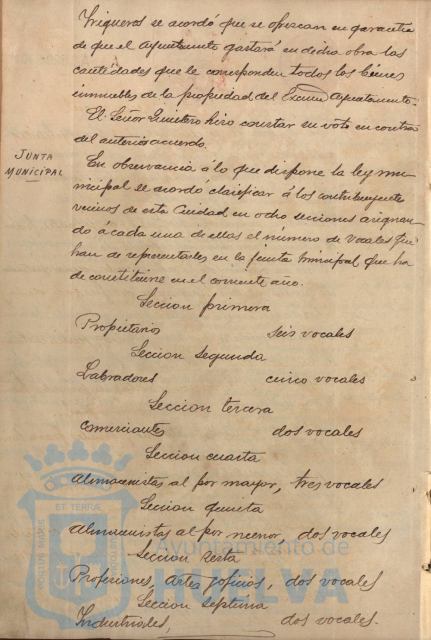 Trigueros se acordó que se ofrezcan en garantia
de que el Ayuntamiento gastará en dicha obra las
cantidades que le corresponden todos los bienes
inmuebles de la propiedad del Excmo Ayuntamiento.
El Señor Gimeteno hizo constar su voto en contra
del anterior acuerdo.
JUNTA
MUNICIPAL
En observancia á lo que dispone la ley mu-
nicipal se acordó clasificar á los contribuyentes
vecinos de esta Ciudad en ocho secciones asignan-
do á cada una de ellas el número de vocales que
han de representarles en la junta municipal que ha
de constituirse en el corriente año.
Seccion primera
Propietarios seis vocales
Seccion segunda
Labradores cinco vocales
Seccion tercera
Comerciantes dos vocales
Seccion cuarta
Almacenistas al por mayor, tres vocales
Seccion quinta
Almacenistas al por menor, dos vocales
Seccion sexta
Profesiones, artes y oficios, dos vocales
Seccion septima
Industriales, dos vocales.
Ayuntamiento de
HUELVA